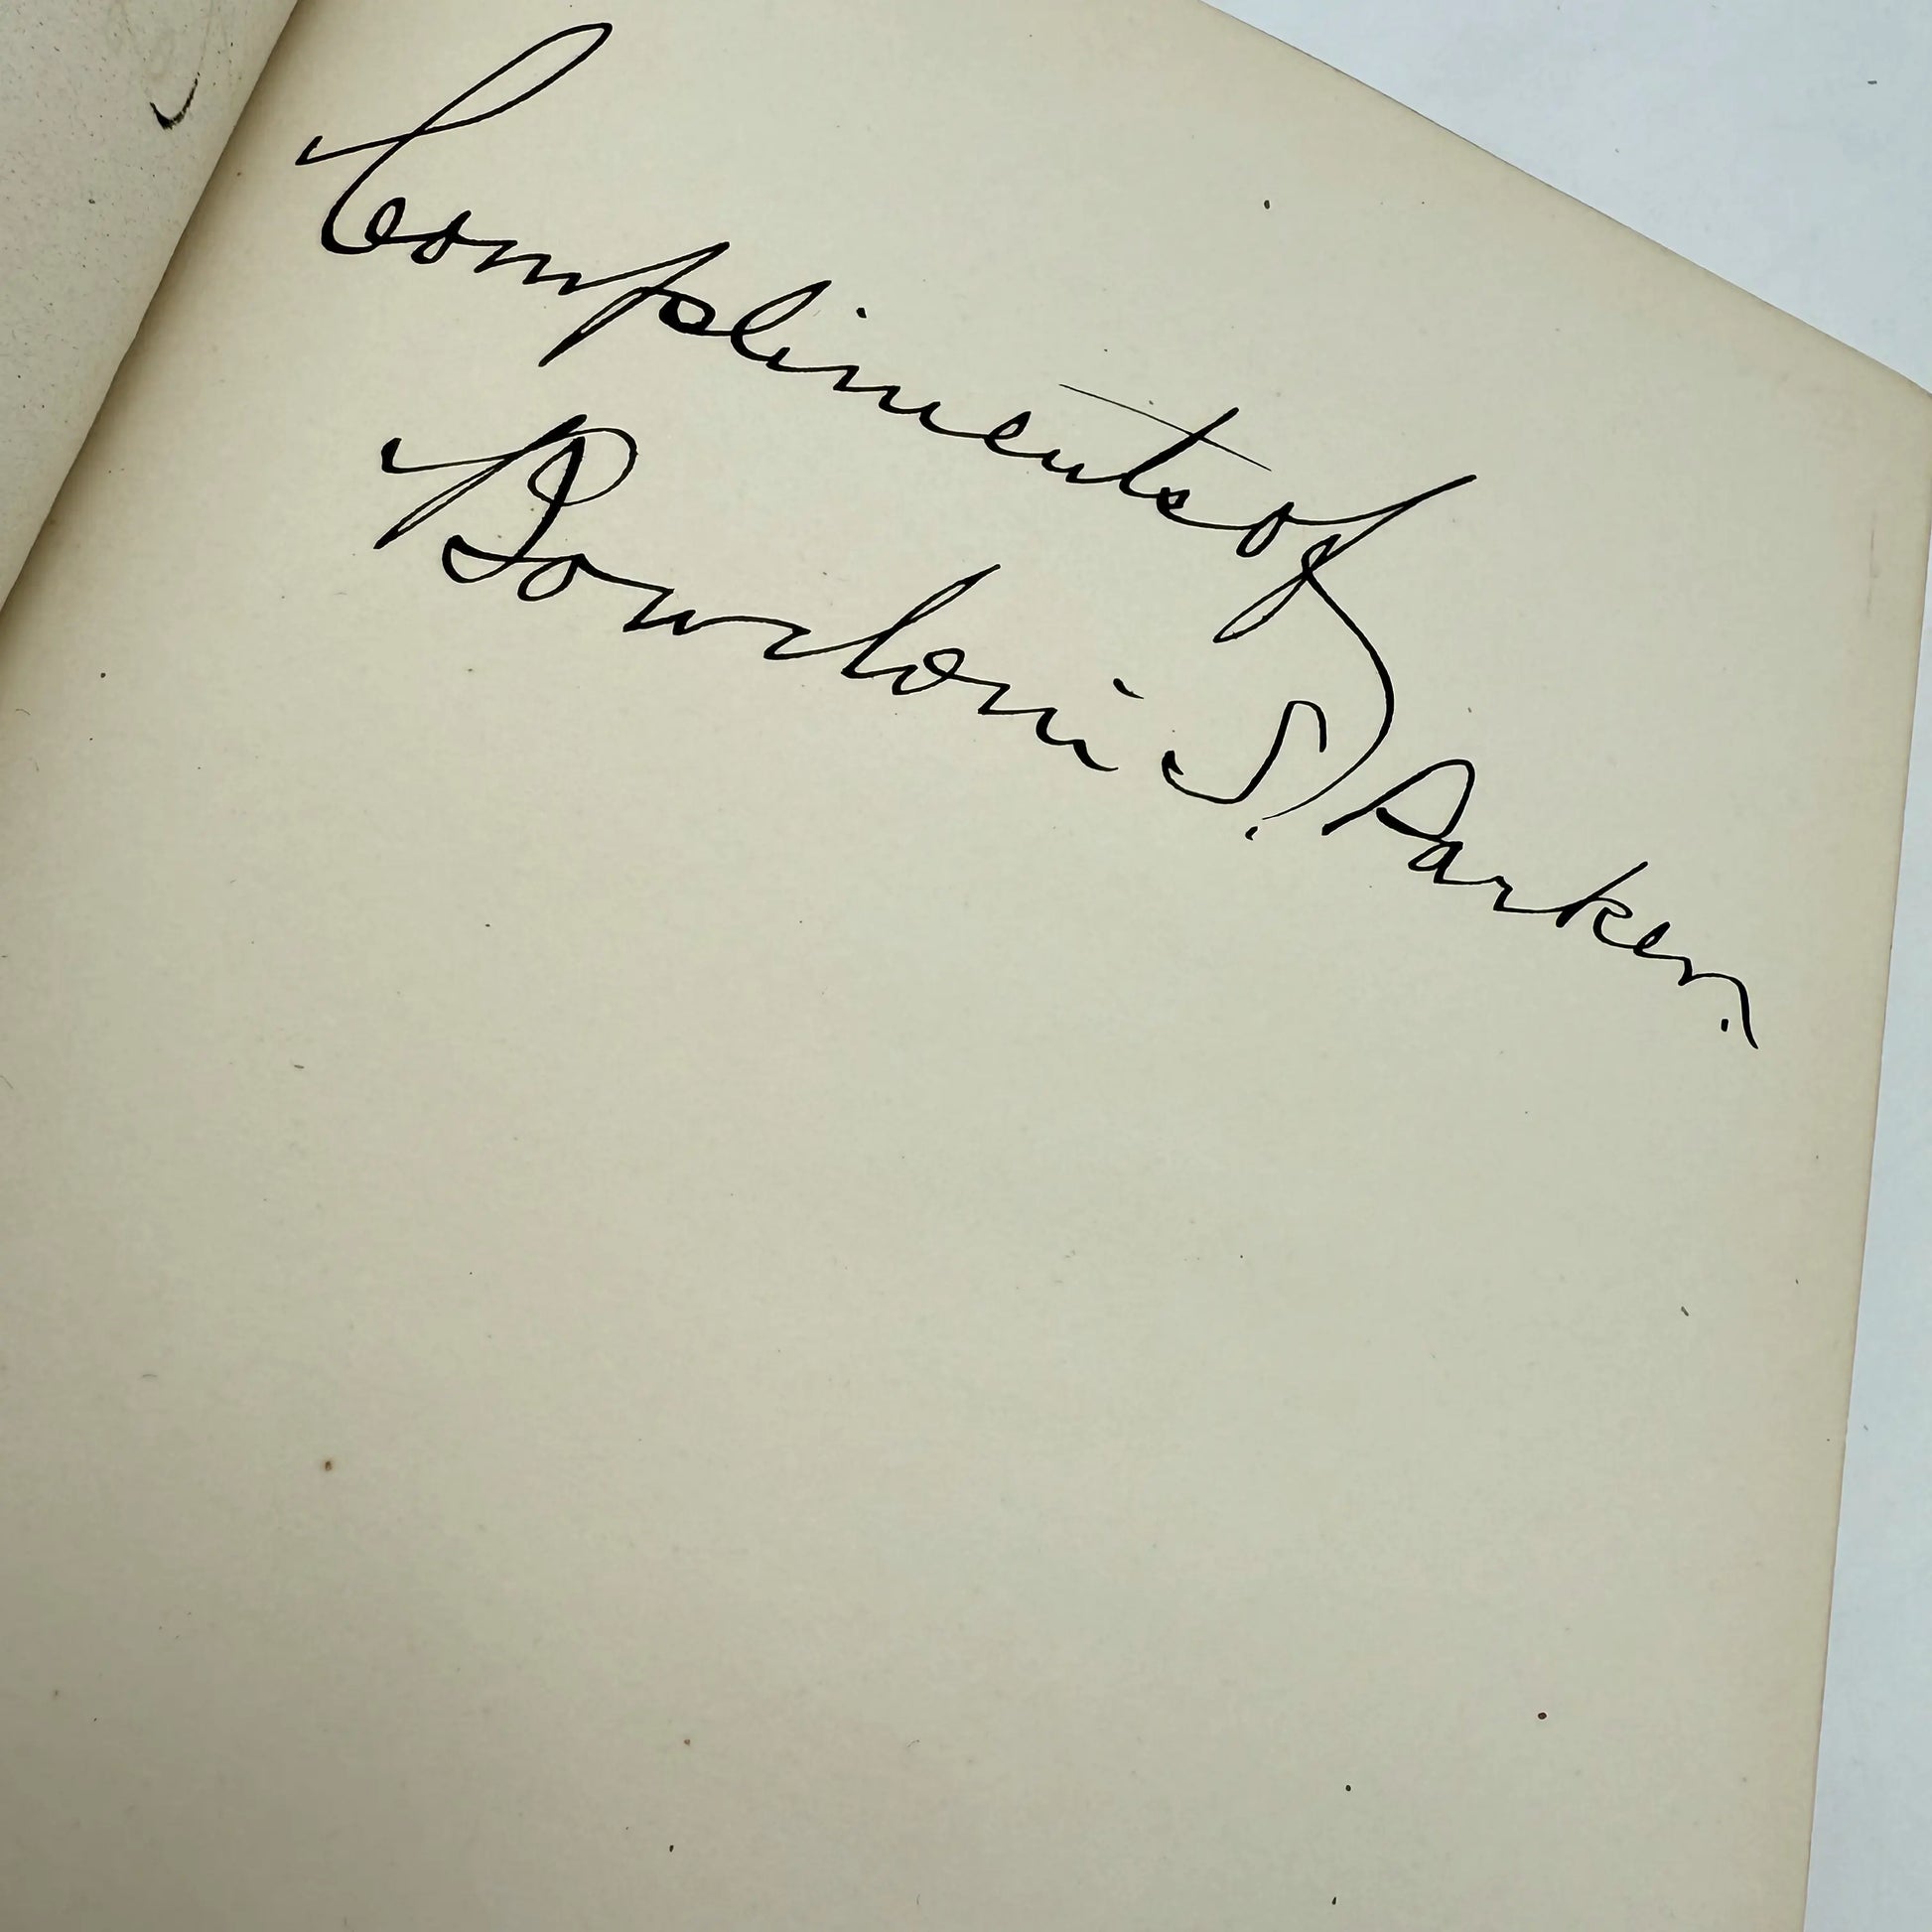 Compliments of
Bowdoin S. Parker.